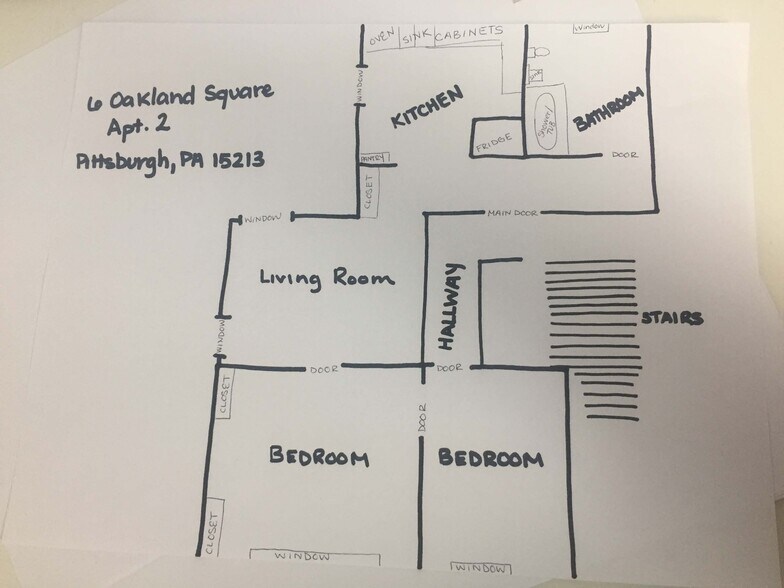 OVEN SINK CABINETS
WINDOW
6 Oakland Square
Apt. 2
Pittsburgh, PA 15213
WINDOW
KITCHEN
BATHROOM
SHOWER/
TUB
FRIDGE
DOOR
PANTRY
CLOSET
WINDOW
MAIN DOOR
Living Room
HALLWAY
STAIRS
WINDOW
DOOR
DOOR
CLOSET
DOOR
BEDROOM
BEDROOM
CLOSET
WINDOW
WINDOW